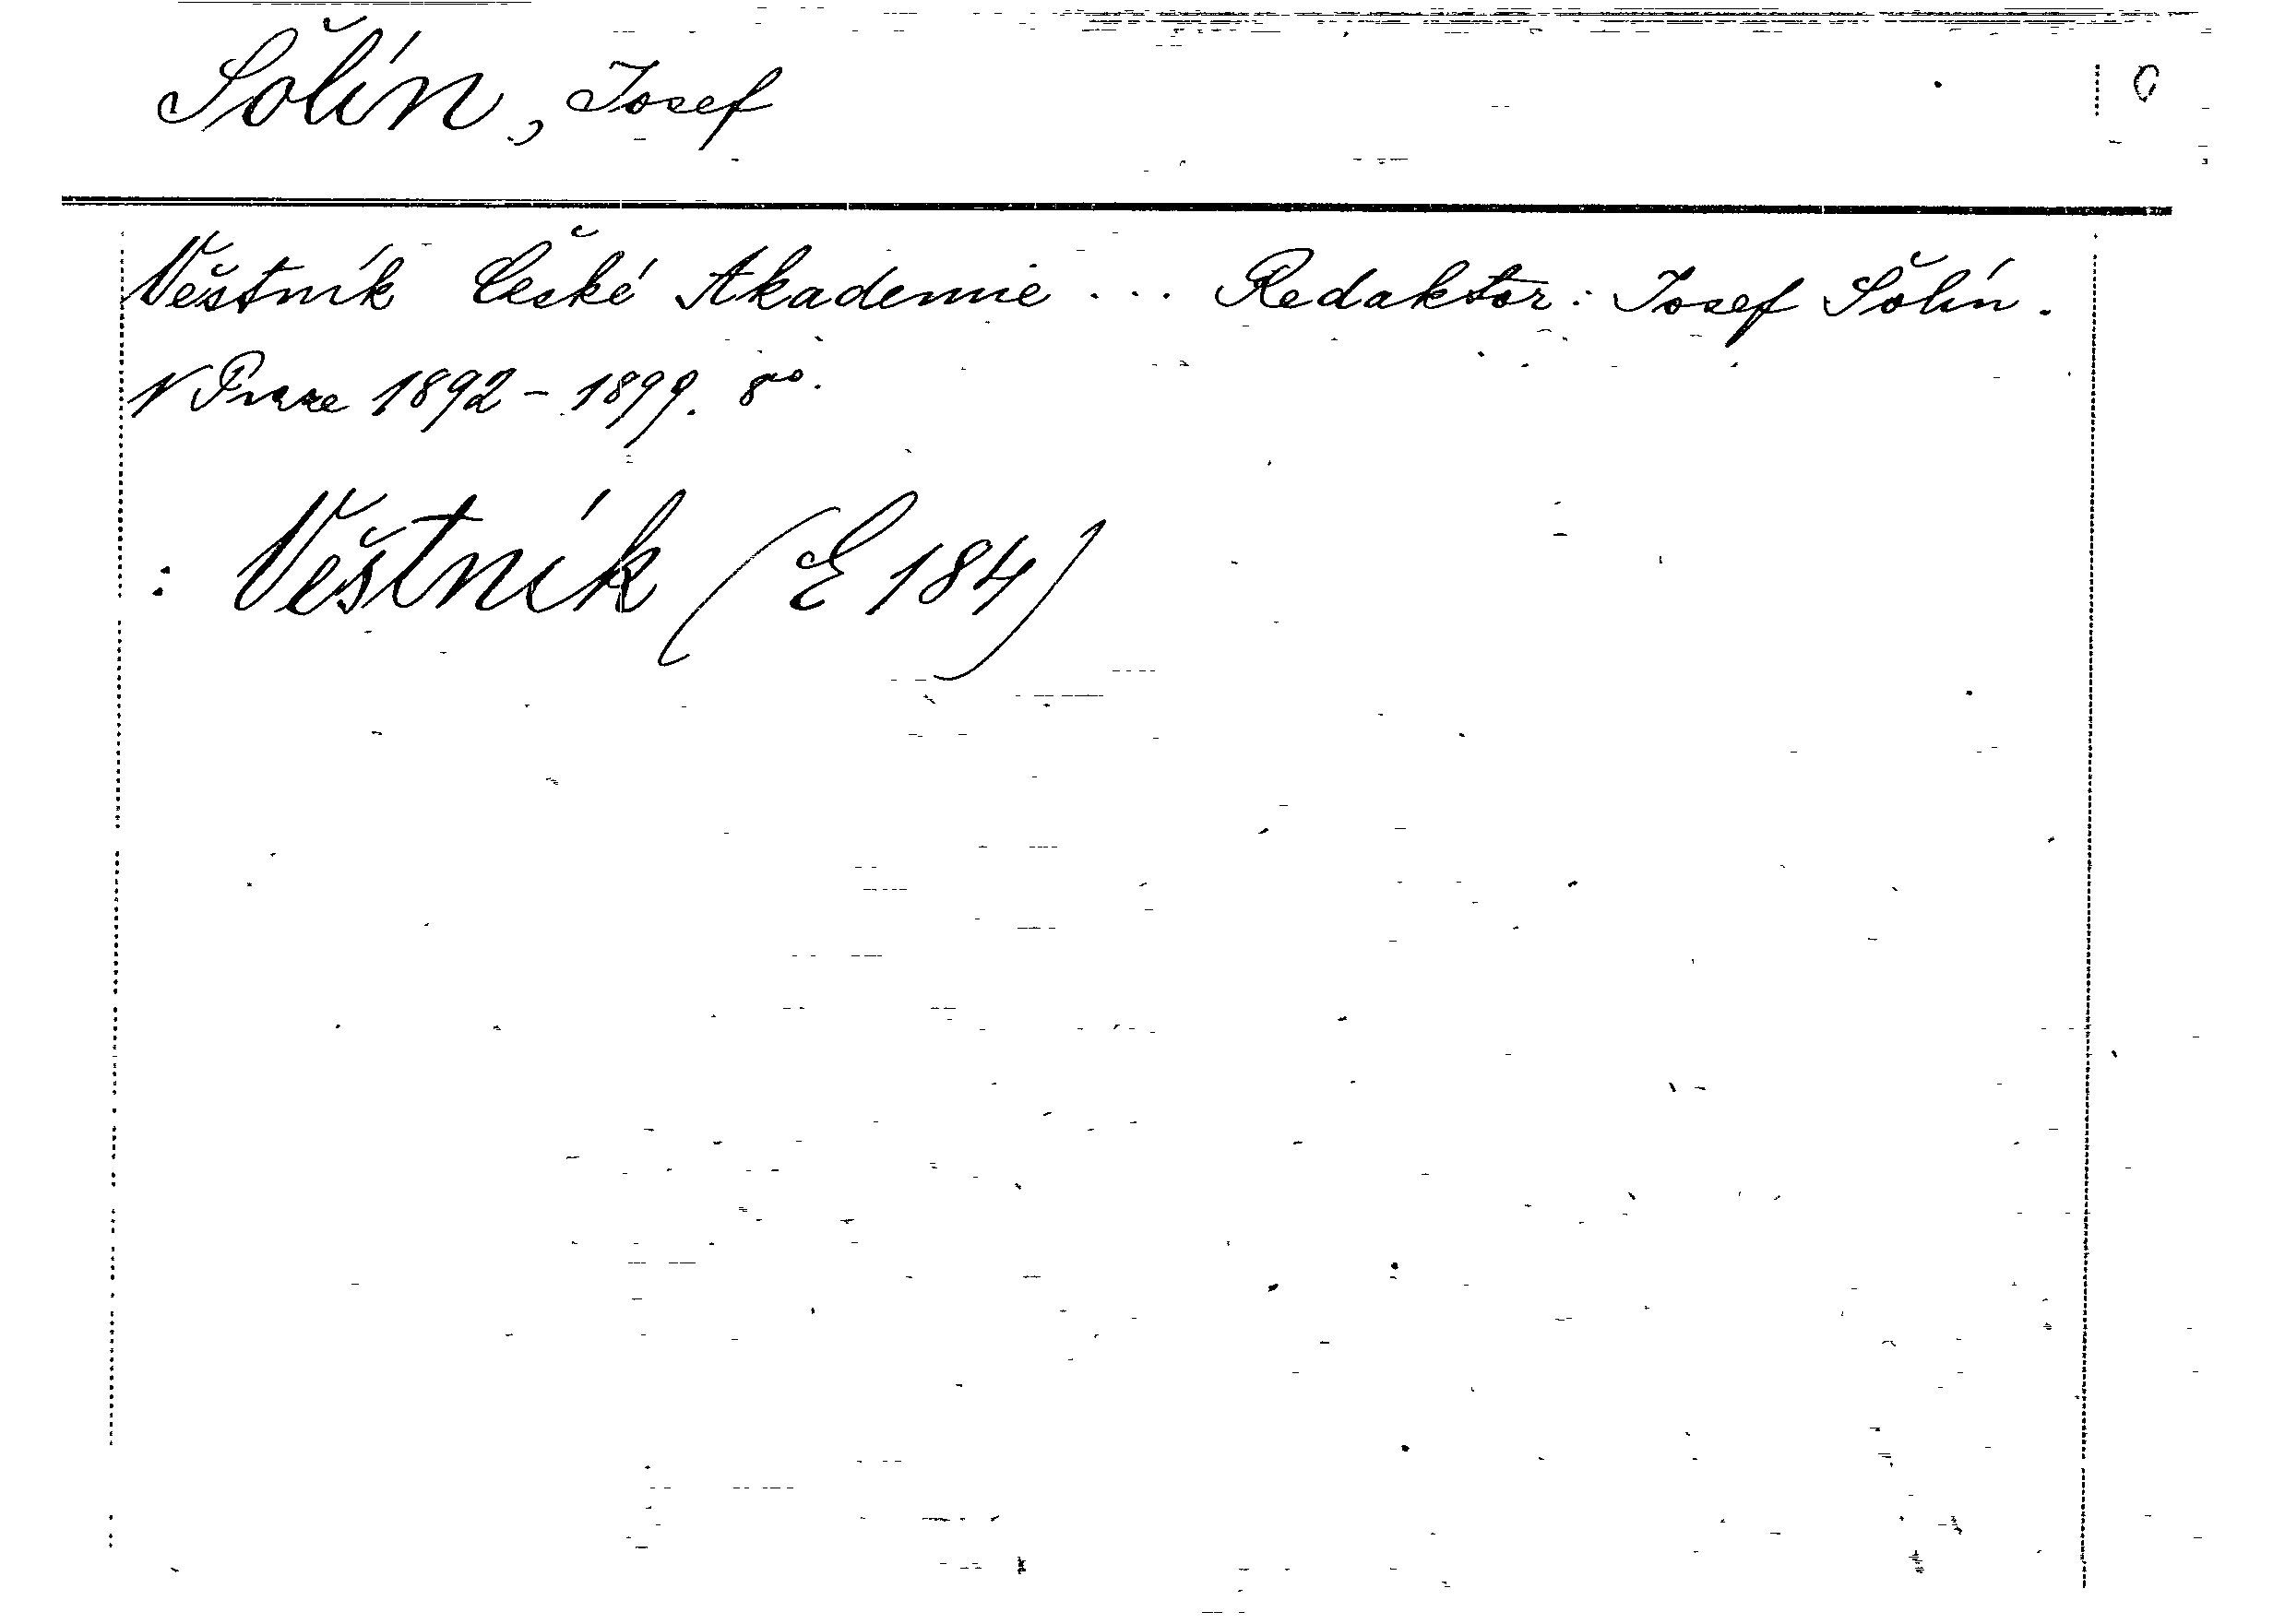 Šolín, Josef
Věstník České Akademie ... Redaktor: Josef Šolín.
V Praze 1892 - 1899. 8vo.
: Věstník (E 184)